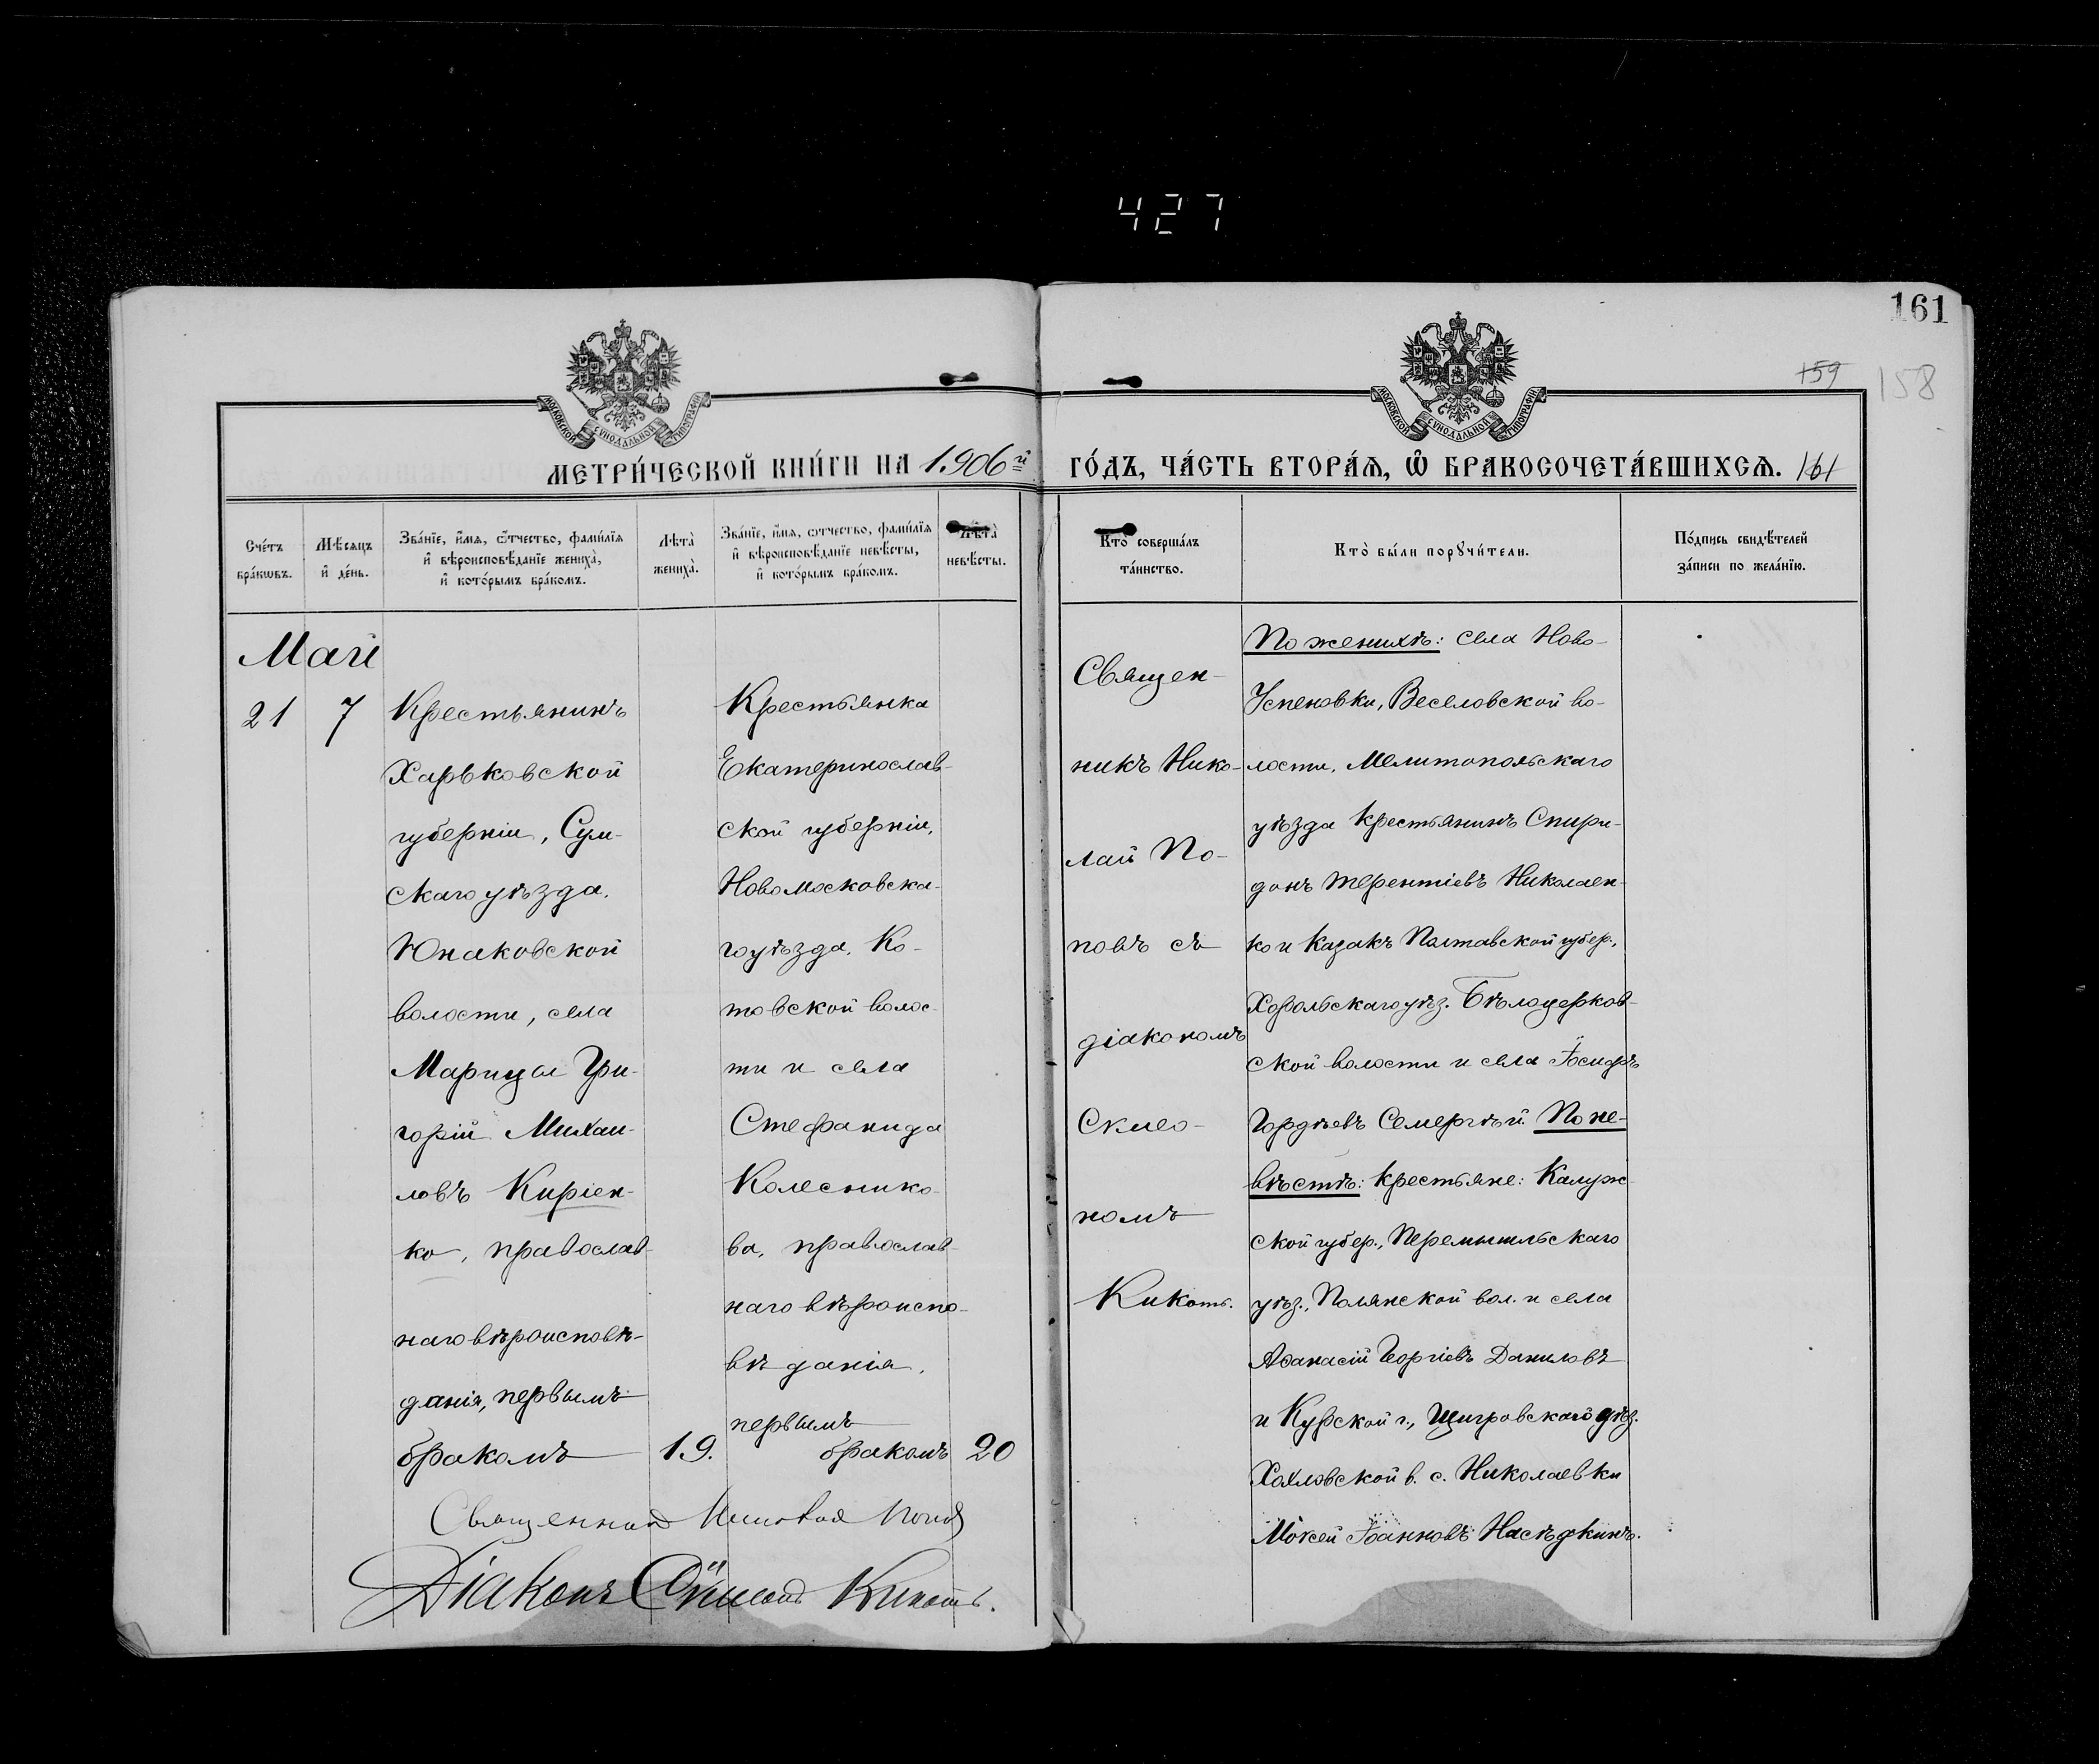 427
161
159 158
МОСКОВСКОЙ СѴНОДАЛЬНОЙ ТИПОГРАФІИ
МОСКОВСКОЙ СѴНОДАЛЬНОЙ ТИПОГРАФІИ
МЕТРИ́ЧЕСКОЙ КНИ́ГИ НА 1906й
ГО́ДЪ, ЧА́СТЬ ВТОРА́Я, Ѽ БРАКОСОЧЕТА́ВШИХСЯ. 161
Сче́тъ
бра́ковъ.
Мѣ́сяцъ
и҆ де́нь.
Зва́нїе, и҆́мя, ѻ҆́тчество, фами́лїя
и҆ вѣроисповѣ́данїе жениха̀,
и҆ кото́рымъ бра́комъ.
Лѣта̀
жениха̀.
Зва́нїе, и҆́мя, ѻ҆́тчество, фами́лїя
и҆ вѣроисповѣ́данїе невѣ́сты,
и҆ кото́рымъ бра́комъ.
Лѣта̀
невѣ́сты.
Кто̀ соверша́лъ
та́инство.
Кто̀ бы́ли порꙋчи́тели.
По́дпись свидѣ́телей
за́писи по жела́нїю.
Май
21
7
Крестьянинъ
Харьковской
губерніи, Сум-
скаго уѣзда,
Юнаковской
волости, села
Марицы Гри-
горій Михаи-
ловъ Киріен-
ко, православ-
наго вѣроисповѣ-
данія, первымъ
бракомъ
19.
Крестьянка
Екатеринослав-
ской губерніи,
Новомосковска-
го уѣзда, Ко-
товской волос-
ти и села
Стефанида
Колеснико-
ва, православ-
наго вѣроиспо-
вѣданія,
первымъ
бракомъ
20
Священ-
никъ Нико-
лай По-
повъ съ
діакономъ
номъ
Кикоть.
По женихѣ: села Ново-
Успеновки, Веселовской во-
лости, Мелитопольскаго
уѣзда крестьянинъ Спири-
донъ Терентіевъ Николаен-
ко и казакъ Полтавской губер.,
Хорольскаго уѣз. Бѣлоцерков-
ской волости и села Іосифъ
Гордѣевъ Семергѣй. По не-
вѣстѣ: крестьяне: Калуж-
ской губер., Перемышльскаго
уѣз., Полянской вол. и села
Аѳанасій Георгіевъ Даниловъ
и Курской г., Щигровскаго уѣз.
Хохловской в. с. Николаевки
Моѵсей Іоанновъ Насѣдкинъ.
Священникъ Николай Поповъ
Діаконъ Сѵмеонъ Кикоть.